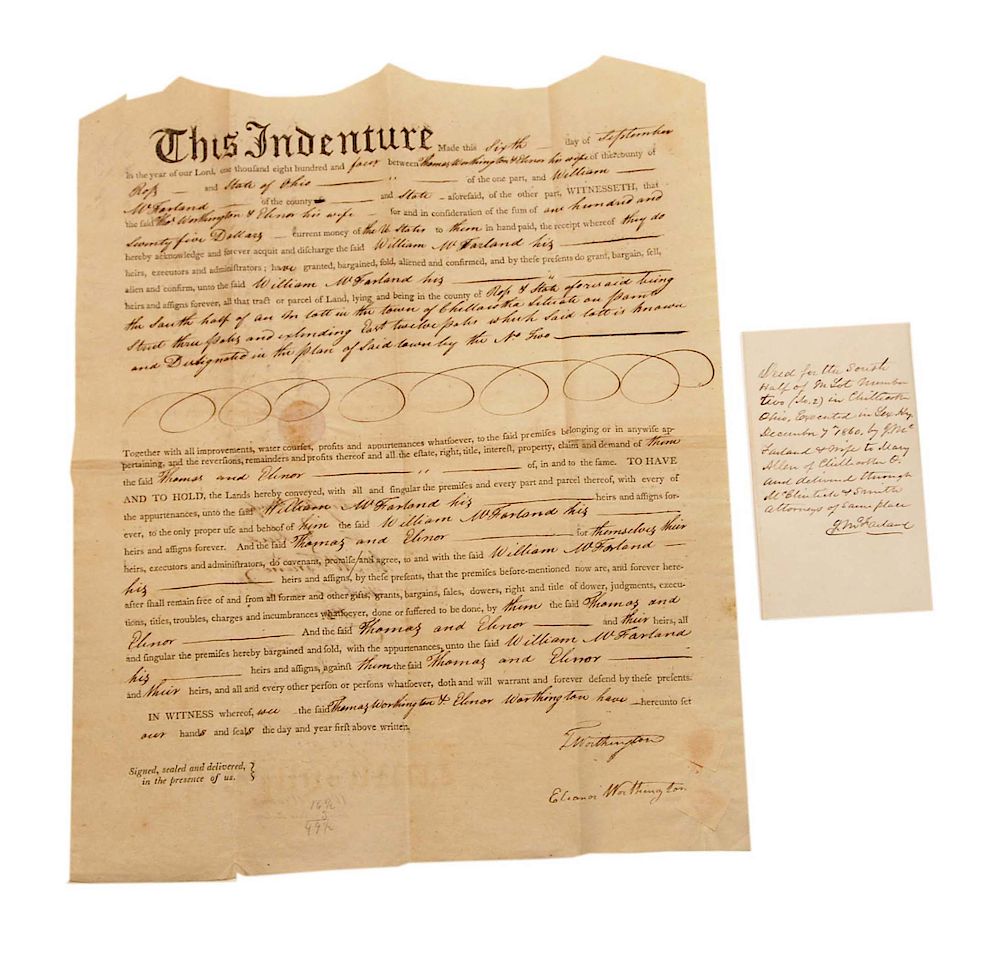 This Indenture Made this Sixth day of September
In the year of our Lord, one thousand eight hundred and four between Thomas Worthington & Elinor his wife of the county of
Roſs — and State of Ohio — " — of the one part, and William —
McFarland — of the county — and State — aforeſaid, of the other part, WITNESSETH, that
the ſaid Thoˢ Worthington & Elinor his wife — for and in conſideration of the ſum of one hundred and
Seventy five Dollars — current money of the U States to them in hand paid, the receipt whereof they do
hereby acknowledge and forever acquit and diſcharge the ſaid William McFarland his —
heirs, executors and adminiſtrators; have granted, bargained, ſold, aliened and confirmed, and by theſe preſents do grant, bargain, ſell,
alien and confirm, unto the ſaid William McFarland his — "
heirs and aſſigns forever, all that tract or parcel of Land, lying and being in the county of Roſs & State aforesaid being
the South half of an In lott in the town of Chillacotha Situate on Paint
Street three poles and extending East twelve poles which Said lott is known
and Designated in the plan of Said town by the No Two —
Together with all improvements, water courſes, profits and appurtenances whatſoever, to the ſaid premiſes belonging or in anywiſe ap-
pertaining, and the reverſions, remainders and profits thereof and all the eſtate, right, title, intereſt, property, claim and demand of them
the ſaid Thomas and Elinor — " — of, in and to the ſame. TO HAVE
AND TO HOLD, the Lands hereby conveyed, with all and ſingular the premiſes and every part and parcel thereof, with every of
the appurtenances, unto the ſaid William McFarland his — heirs and aſſigns for-
ever, to the only proper uſe and behoof of him the ſaid William McFarland his —
heirs and aſſigns forever. And the ſaid Thomas and Elinor — for themselves their
heirs, executors and adminiſtrators, do covenant, promiſe and agree, to and with the ſaid William McFarland —
his — heirs and aſſigns, by theſe preſents, that the premiſes before-mentioned now are, and forever here-
after ſhall remain free of and from all former and other gifts, grants, bargains, ſales, dowers, right and title of dower, judgments, execu-
tions, titles, troubles, charges and incumbrances whatſoever, done or ſuffered to be done, by them the ſaid Thomas and
Elinor — And the ſaid Thomas and Elinor — and their heirs, all
and ſingular the premiſes hereby bargained and ſold, with the appurtenances, unto the ſaid William McFarland
his — heirs and aſſigns, againſt them the ſaid Thomas and Elinor —
and their heirs, and all and every other perſon or perſons whatſoever, doth and will warrant and forever defend by theſe preſents.
IN WITNESS whereof, wee — the ſaid Thomas Worthington & Elinor Worthington have — hereunto ſet
our hands and ſeals the day and year firſt above written.
T Worthington
Signed, sealed and delivered, }
in the presence of us. }
Eleanor Worthington
Deed for the South
Half of In Lot Number
two (No. 2) in Chillicothe
Ohio, Executed in Lex Ky
December 7 1860, by J. Mc
Farland & Wife to Mary
Allen of Chillicothe O.
and delivered through
McClintick & Smith
Attorneys of same place
J. McFarland